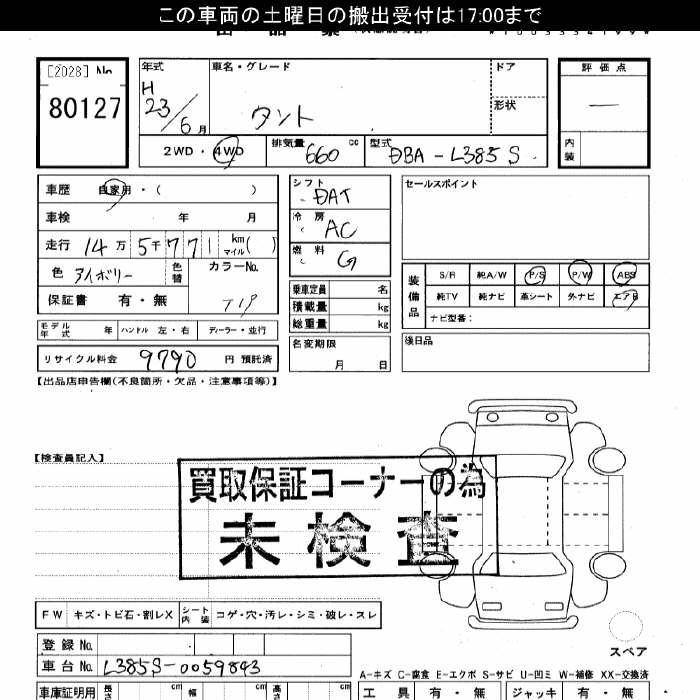 この車両の土曜日の搬出受付は17:00まで
[2028] No
80127
年式
H
23/6月
車名・グレード
タント
ドア
形状
評価点
—
内装
2WD・4WD
排気量 660 cc
型式 DBA-L385S
車歴 自家用・( )
車検 年 月
走行 14万5千771 km マイル( )
色 アイボリー 色替
カラーNo. T19
保証書 有・無
シフト DAT
冷房 AC
燃料 G
乗車定員 名
積載量 kg
総重量 kg
名変期限
月 日
セールスポイント
装備品
S/R 純A/W P/S P/W ABS
純TV 純ナビ 革シート 外ナビ エアB
ナビ型番:
後日品
モデル年式 年 ハンドル 左・右 ディーラー・並行
リサイクル料金 9790 円 預託済
【出品店申告欄(不良箇所・欠品・注意事項等)】
【検査員記入】
買取保証コーナーの為
未検査
FW キズ・トビ石・割レX シート内装 コゲ・穴・汚レ・シミ・破レ・スレ
登録No.
車台No. L385S-0059843
スペア
A-キズ C-腐食 E-エクボ S-サビ U-凹ミ W-補修 XX-交換済
車庫証明用 長さ cm 幅 cm 高さ cm
工具 有・無 ジャッキ 有・無